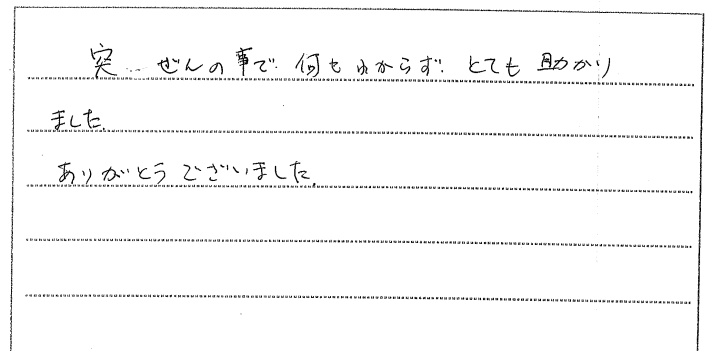 突 ぜんの事で 何もわからず とても 助かり
ました。
ありがとうございました。